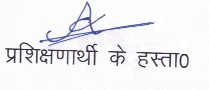 प्रशिक्षणार्थी के हस्ता0